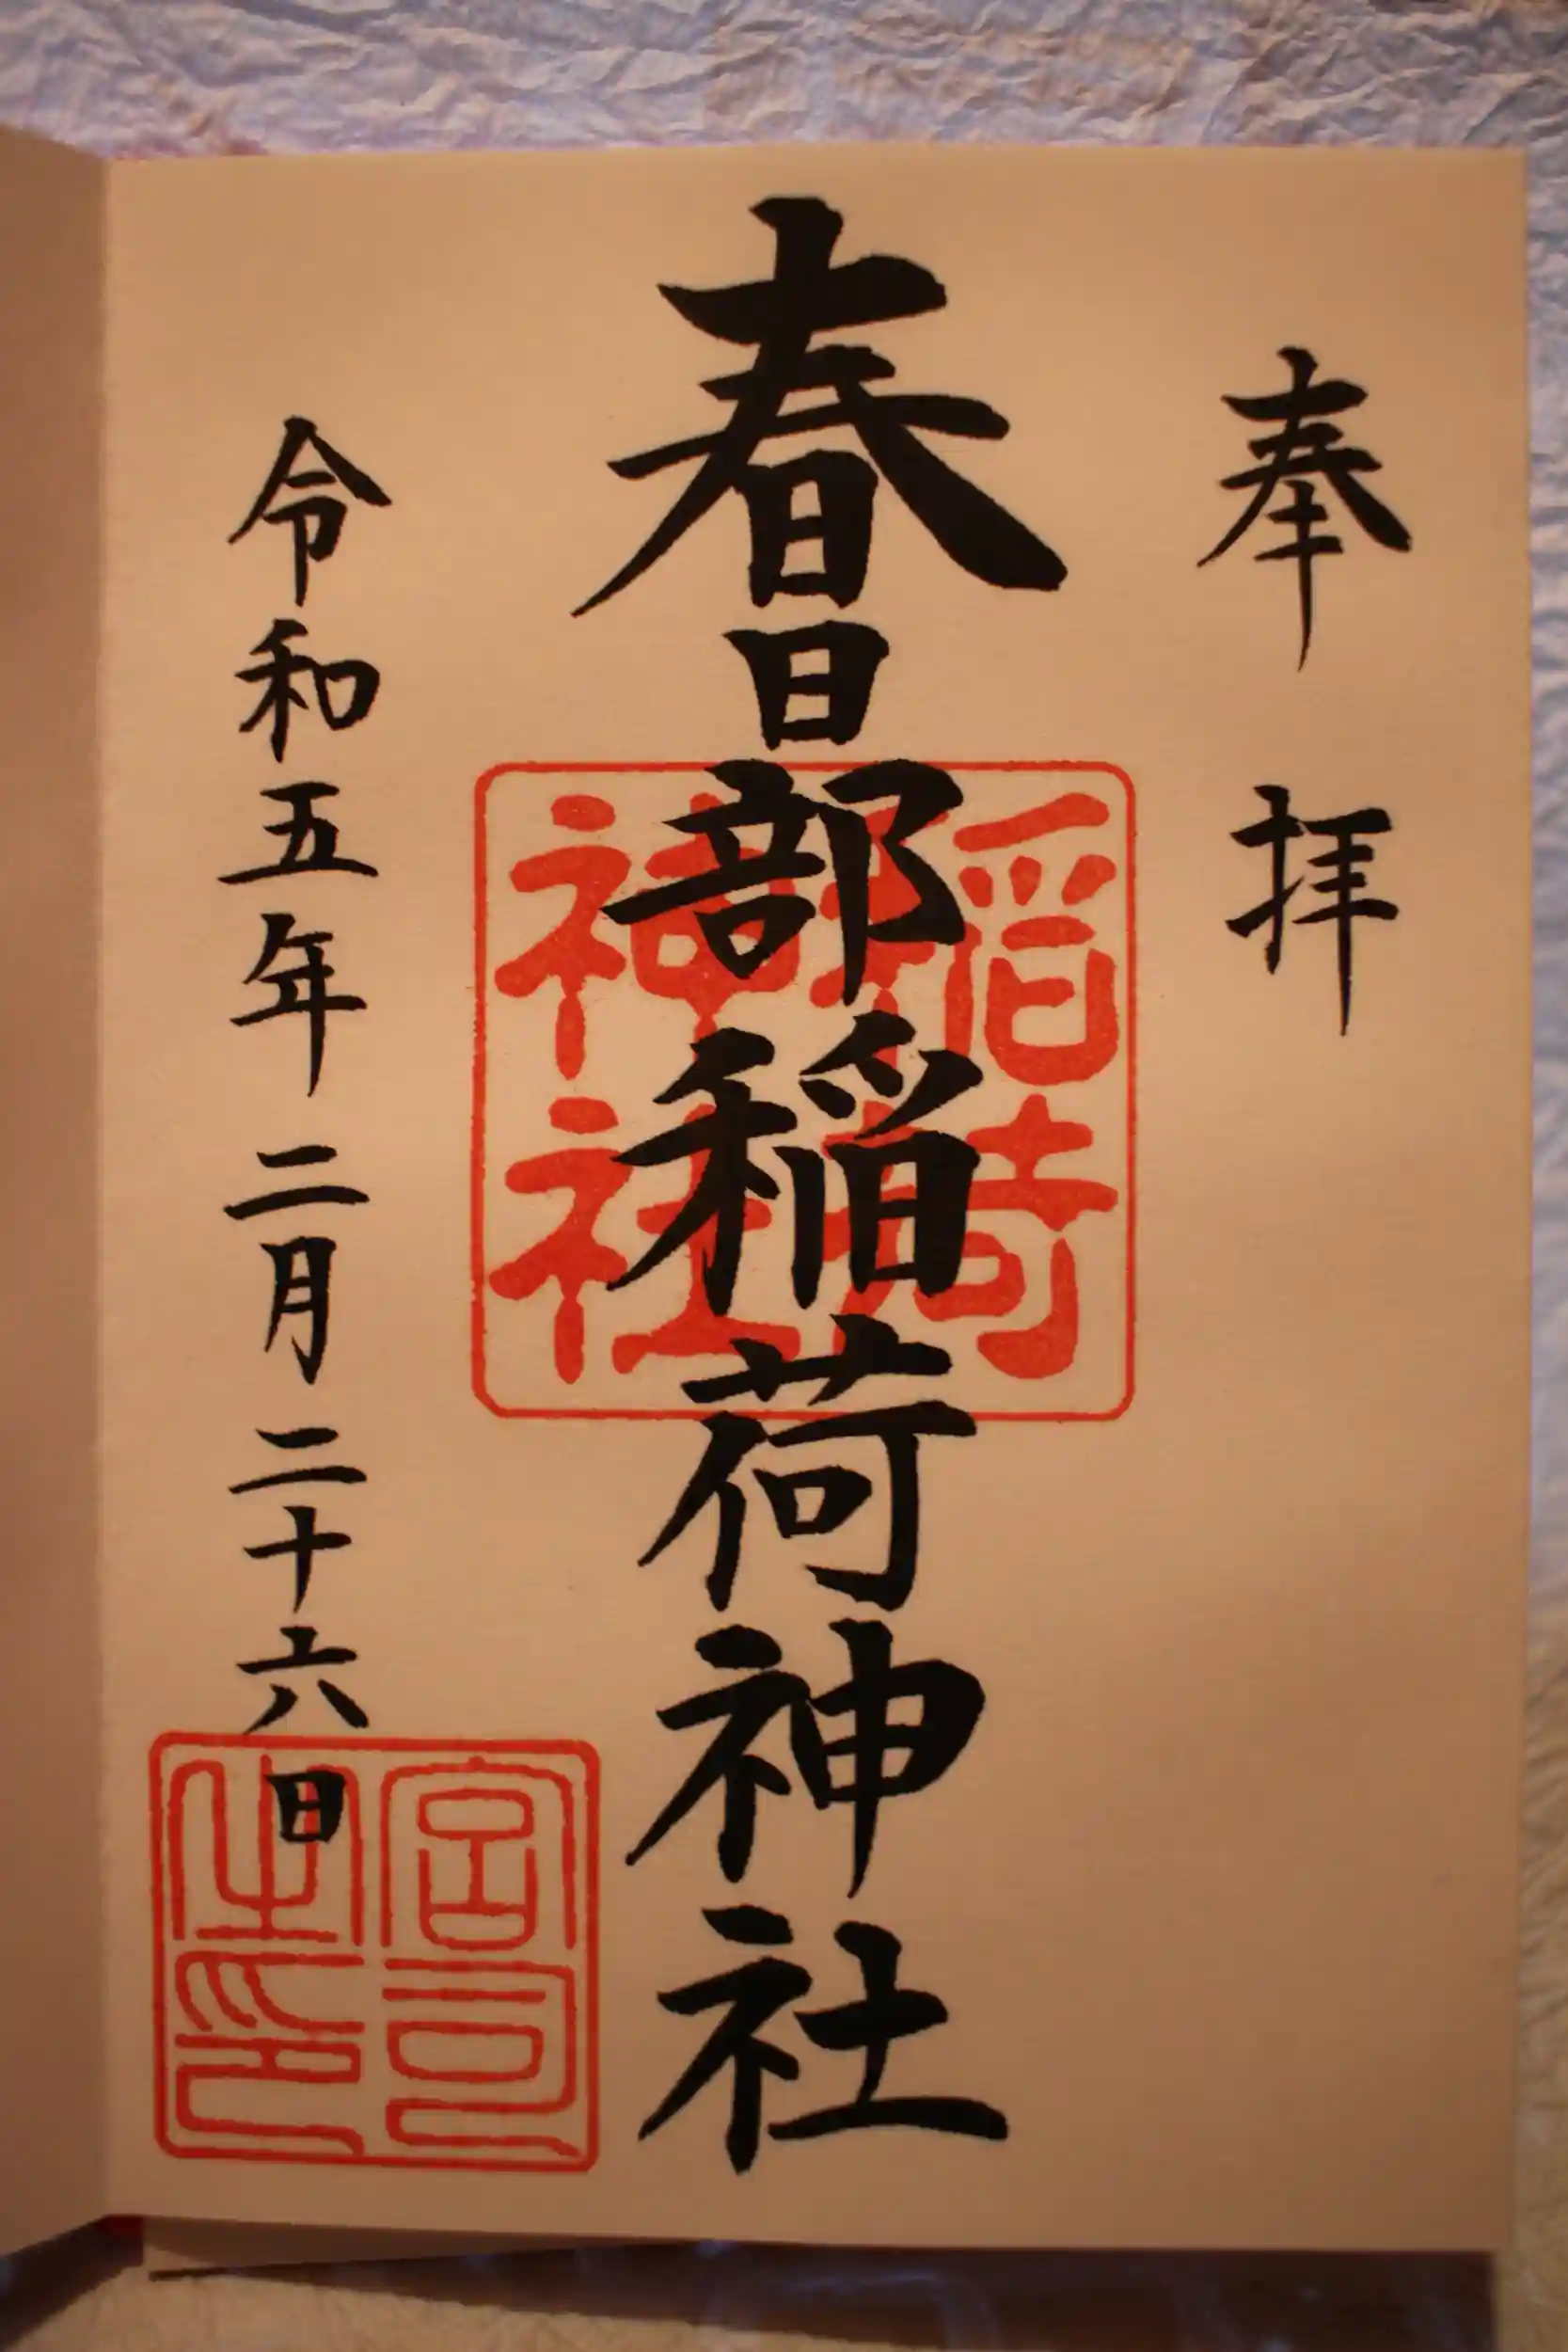 奉拝
春日部稲荷神社
稲荷神社
令和五年二月二十六日
宮司之印